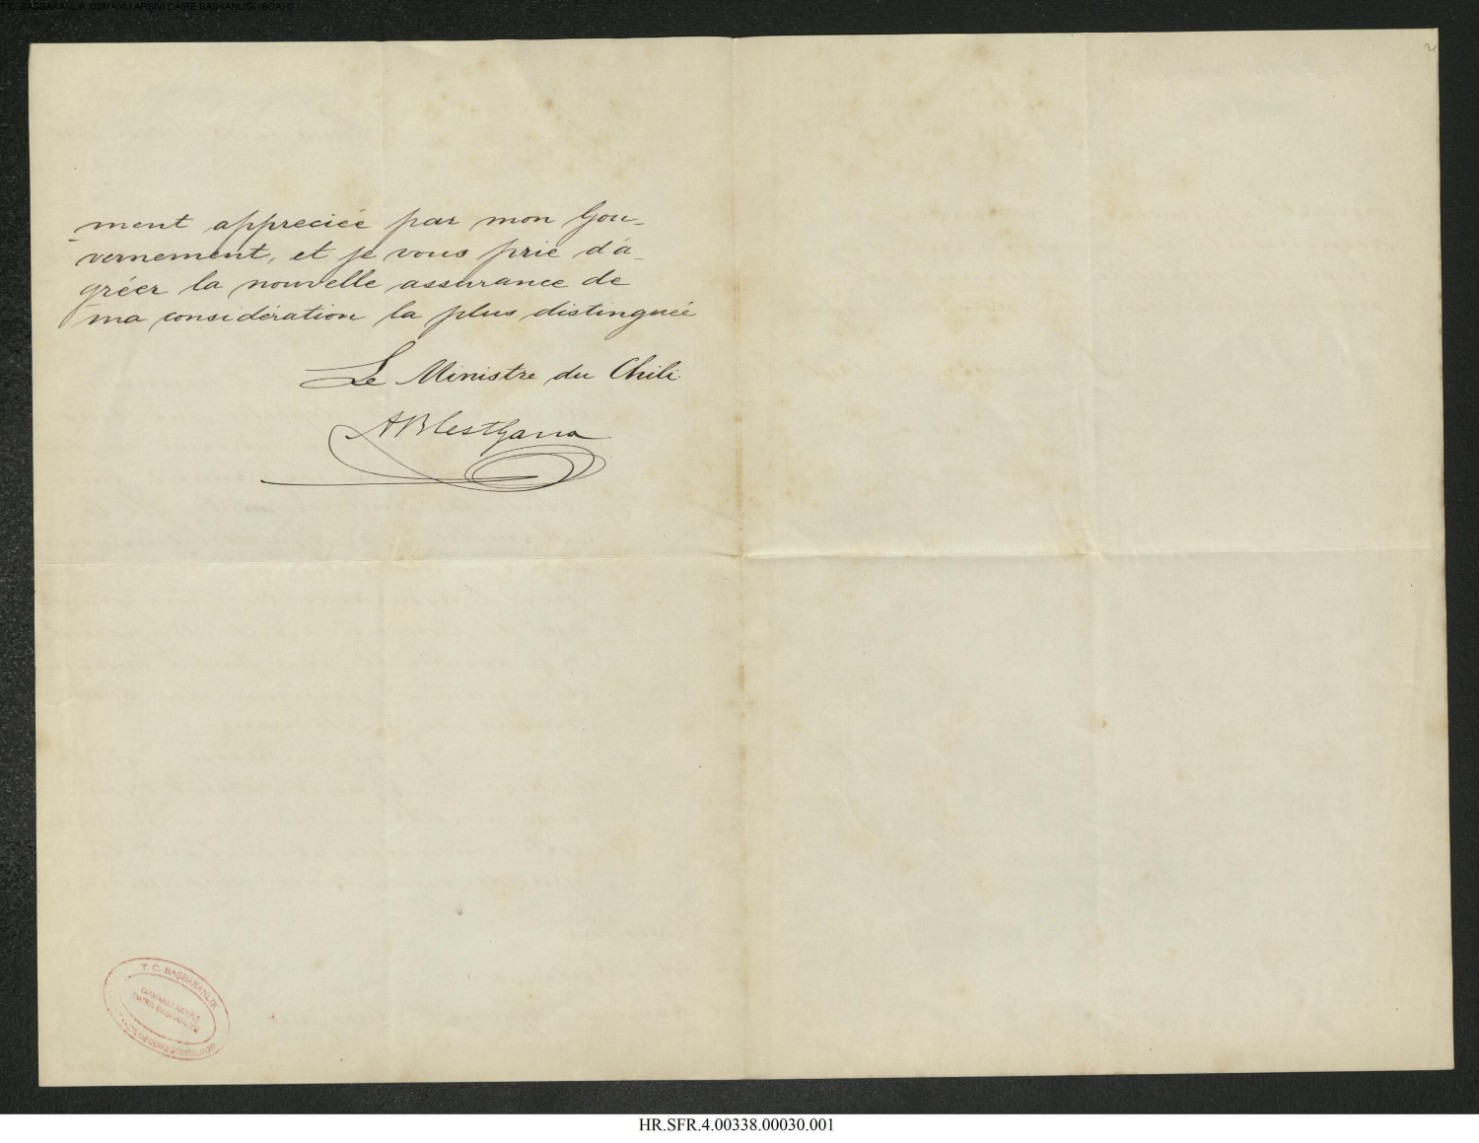 T.C. BAŞBAKANLIK OSMANLI ARŞİVİ DAİRE BAŞKANLIĞI (BOA)
2
ment appreciée par mon Gou-
-vernement, et je vous prie d'a-
gréer la nouvelle assurance de
ma considération la plus distinguée
Le Ministre du Chili
ABlestGana
T. C. BAŞBAKANLIK
OSMANLI ARŞİVİ
DAİRE BAŞKANLIĞI
HR.SFR.4.00338.00030.001